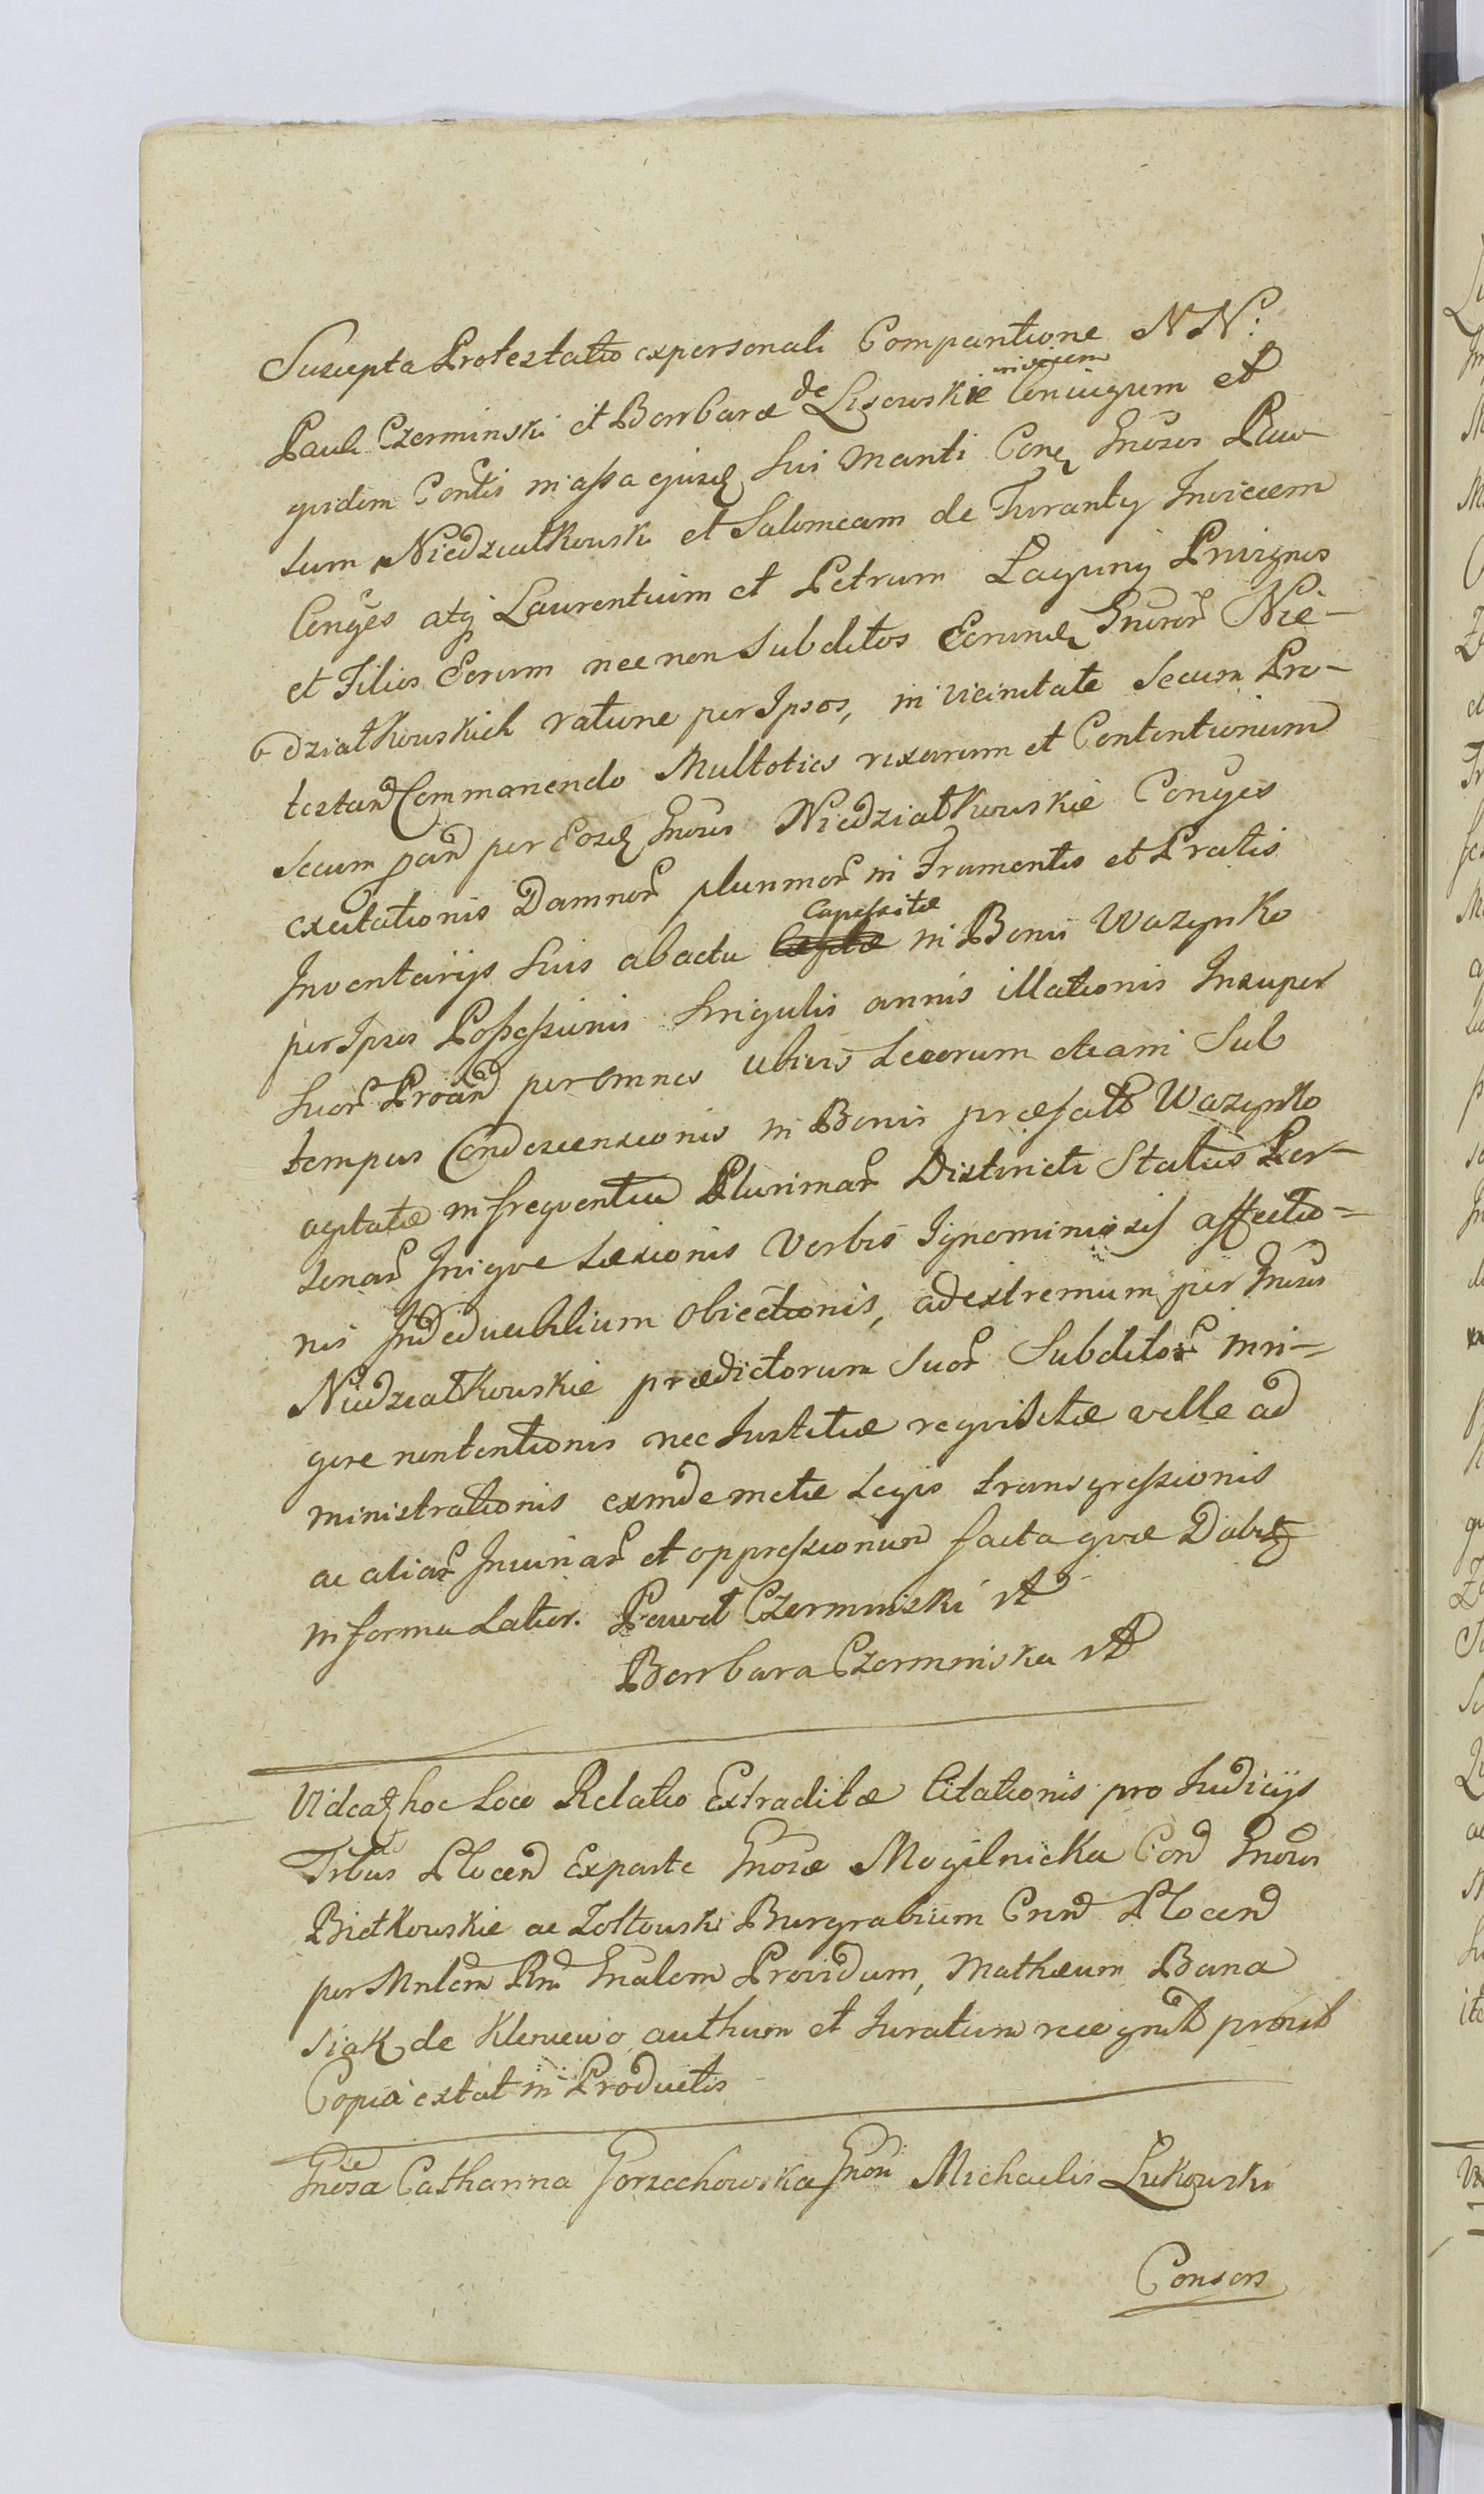 Suscepta Protestatio ex personali Comparitione NN:
Pauli Czerminski et Barbaræ de Lisowskie invicem Coniugum et
quidem Contis in assa ejusd sui Mariti Conq Gnosos Pau-
lum Niedziałkowski et Salomeam de Turanty Invicem
Conjges atq Laurentium et Petrum Łaguny Privignos
et Filios Eorum nec non Subditos Eorund Gnosor Nie-
działkowskich ratione per Ipsos, in vicinitate Secum Pro-
testan Commanendo Multoties rixarum et Contentionum
Secum pan per Eosd Gnosos Niedziałkowskie Conyges
excitationis Damnor plurimor in Frumentis et Pratis
Inventarys Suis abacta Capessitæ in Bonis Wazynko
per Ipsos Possessionis Singulis annis illationis Insuper
Suor Proan per omnes ubivis Locorum etiam Sub
tempus Condescensionis in Bonis præfato Wazynko
agitatæ in frequentia Plurimar Districti Status Per-
sonar Inique Læsionis Verbis Ignominiosis affectio-
nis Inded​ucibilium Obiectionis, ad extremum per Gnosos
Niedziałkowskie prædictorum Suor Subditor inri-
gore non tentionis nec Justitiæ requisitæ velle ad
ministrationis exinde metæ Legis transgressionis
ac aliar Iniuriar et oppressionum facta quæ Dabitq
in forma Latior. Paweł Czerminski
Barbara Czerminska
Videatq hoc Loco Relatio Extraditæ Citationis pro Judicijs
Tribus Plocen Ex parte Gnosæ Mogilnicka Con Gnosos
Bietkowskie ac Zołtowski Burgrabium Cnen Plocen
per Mnlem Rni Gnalem Providum, Mathæum Bana
siak de Kleniewo authum et Juratum recognit prout
Copia extat in Productis
Gnosa Catharina Gorzechowska Gnosi Michaelis Łukowski
Consors